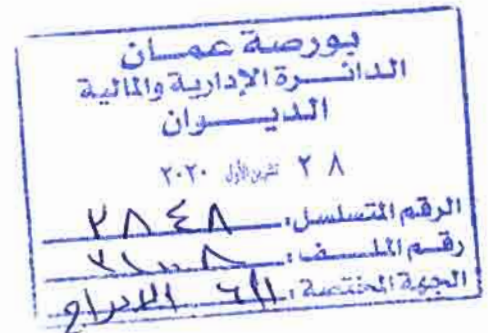 بورصة عمان
الدائرة الإدارية والمالية
الديوان
٢٨ تشرين الأول ٢٠٢٠
الرقم المتسلسل: ٢٨٤٨
رقم الملف:
الجهة المختصة: الادراج